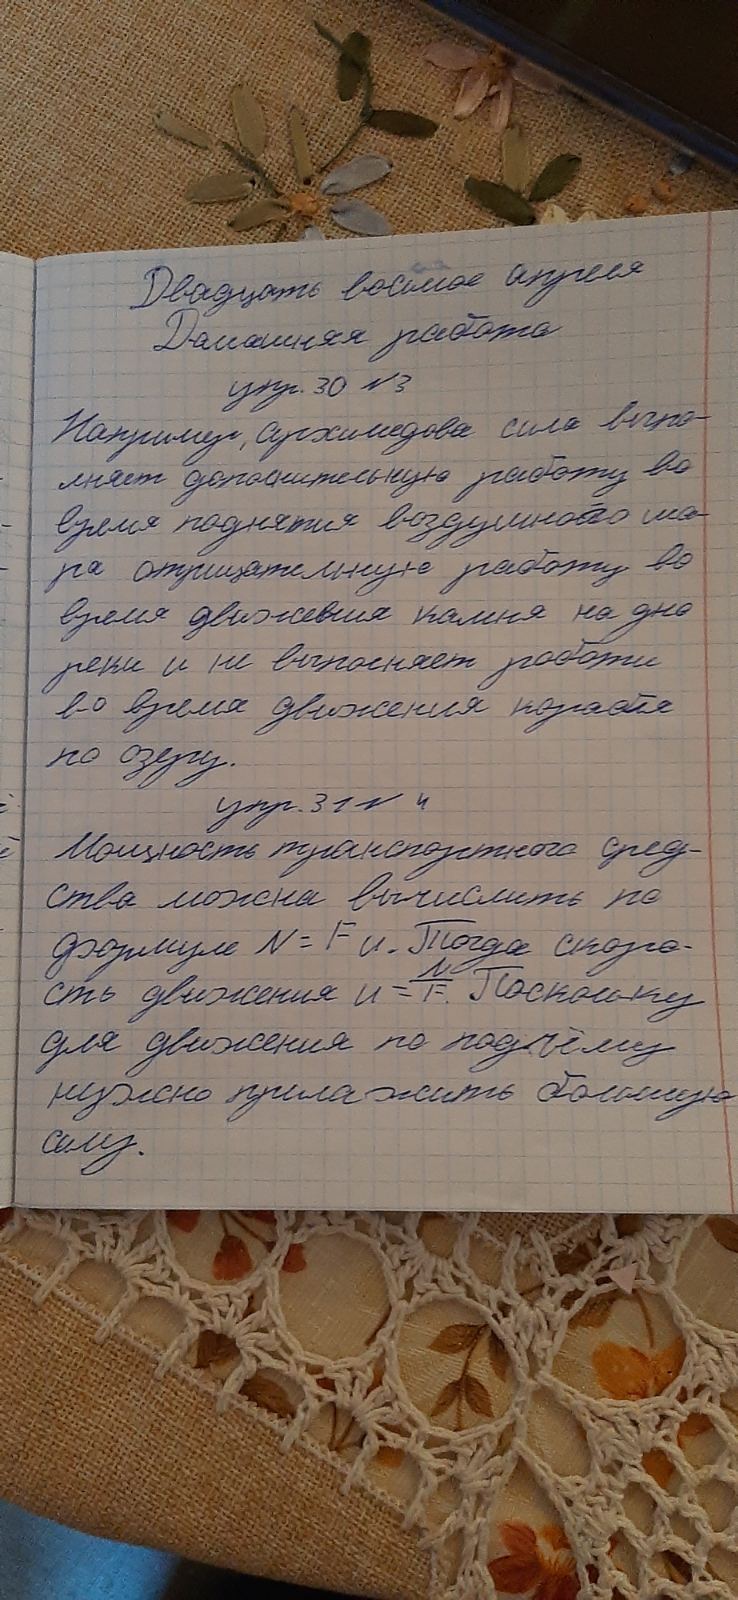 Двадцать восьмое апреля
Домашняя работа
упр. 30 №3
Например, архимедова сила выпо-
лняет дополнительную работу во
время поднятия воздушного ша-
ра отрицательную работу во
время движения камня на дно
реки и не выполняет работи
во время движения корабля
по озеру.
упр. 31 № 4
Мощность транспортного сред-
ства можна вычислить по
формуле N = F и. Тогда скоро-
сть движения и = N/F. Поскольку
для движения по подъёму
нужно прилажить большую
силу.